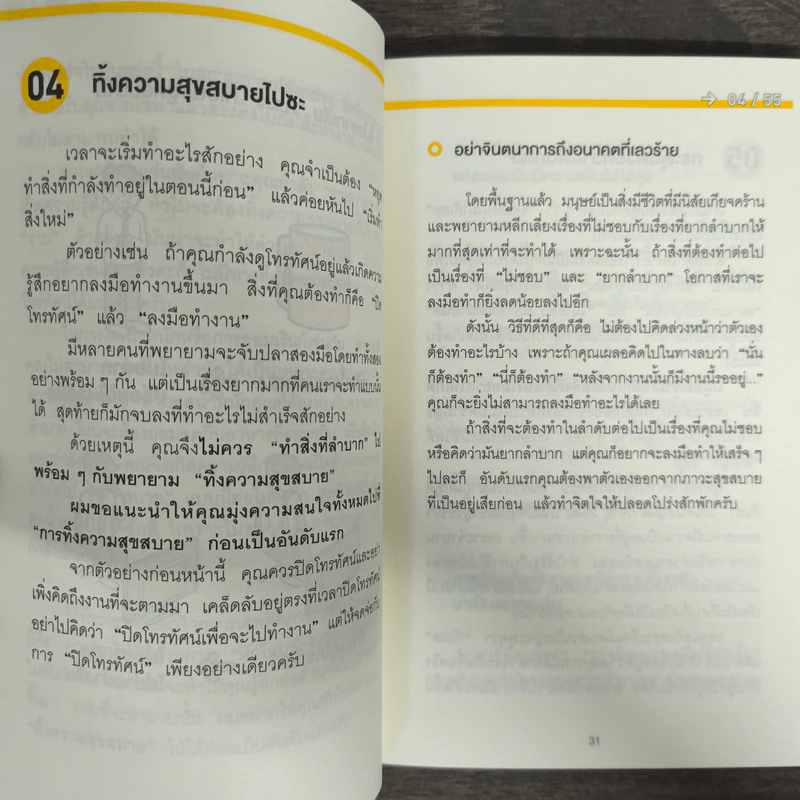 04 ทิ้งความสุขสบายไปซะ
เวลาจะเริ่มทำอะไรสักอย่าง คุณจำเป็นต้อง
ทำสิ่งที่กำลังทำอยู่ในตอนนี้ก่อน” แล้วค่อยหันไป
สิ่งใหม่”
ตัวอย่างเช่น ถ้าคุณกำลังดูโทรทัศน์อยู่แล้วเกิดความ
รู้สึกอยากลงมือทำงานขึ้นมา สิ่งที่คุณต้องทำก็คือ “ปิด
โทรทัศน์” แล้ว “ลงมือทำงาน”
มีหลายคนที่พยายามจะจับปลาสองมือโดยทำทั้งสอง
อย่างพร้อม ๆ กัน แต่เป็นเรื่องยากมากที่คนเราจะทำแบบนั้น
ได้ สุดท้ายก็มักจบลงที่ทำอะไรไม่สำเร็จสักอย่าง
ด้วยเหตุนี้ คุณจึงไม่ควร “ทำสิ่งที่ลำบาก” ไป
พร้อม ๆ กับพยายาม “ทิ้งความสุขสบาย”
ผมขอแนะนำให้คุณมุ่งความสนใจทั้งหมดไปที่
“การทิ้งความสุขสบาย” ก่อนเป็นอันดับแรก
จากตัวอย่างก่อนหน้านี้ คุณควรปิดโทรทัศน์และอย่า
เพิ่งคิดถึงงานที่จะตามมา เคล็ดลับอยู่ตรงที่เวลาปิดโทรทัศน์
อย่าไปคิดว่า “ปิดโทรทัศน์เพื่อจะไปทำงาน” แต่ให้จดจ่อกับ
การ “ปิดโทรทัศน์” เพียงอย่างเดียวครับ
→ 04 / 55
อย่าจินตนาการถึงอนาคตที่เลวร้าย
โดยพื้นฐานแล้ว มนุษย์เป็นสิ่งมีชีวิตที่มีนิสัยเกียจคร้าน
และพยายามหลีกเลี่ยงเรื่องที่ไม่ชอบกับเรื่องที่ยากลำบากให้
มากที่สุดเท่าที่จะทำได้ เพราะฉะนั้น ถ้าสิ่งที่ต้องทำต่อไป
เป็นเรื่องที่ “ไม่ชอบ” และ “ยากลำบาก” โอกาสที่เราจะ
ลงมือทำก็ยิ่งลดน้อยลงไปอีก
ดังนั้น วิธีที่ดีที่สุดก็คือ ไม่ต้องไปคิดล่วงหน้าว่าตัวเอง
ต้องทำอะไรบ้าง เพราะถ้าคุณเผลอคิดไปในทางลบว่า “นั่น
ก็ต้องทำ” “นี่ก็ต้องทำ” “หลังจากงานนั้นก็มีงานนี้รออยู่...”
คุณก็จะยิ่งไม่สามารถลงมือทำอะไรได้เลย
ถ้าสิ่งที่จะต้องทำในลำดับต่อไปเป็นเรื่องที่คุณไม่ชอบ
หรือคิดว่ามันยากลำบาก แต่คุณก็อยากจะลงมือทำให้เสร็จ ๆ
ไปละก็ อันดับแรกคุณต้องพาตัวเองออกจากภาวะสุขสบาย
ที่เป็นอยู่เสียก่อน แล้วทำจิตใจให้ปลอดโปร่งสักพักครับ
31